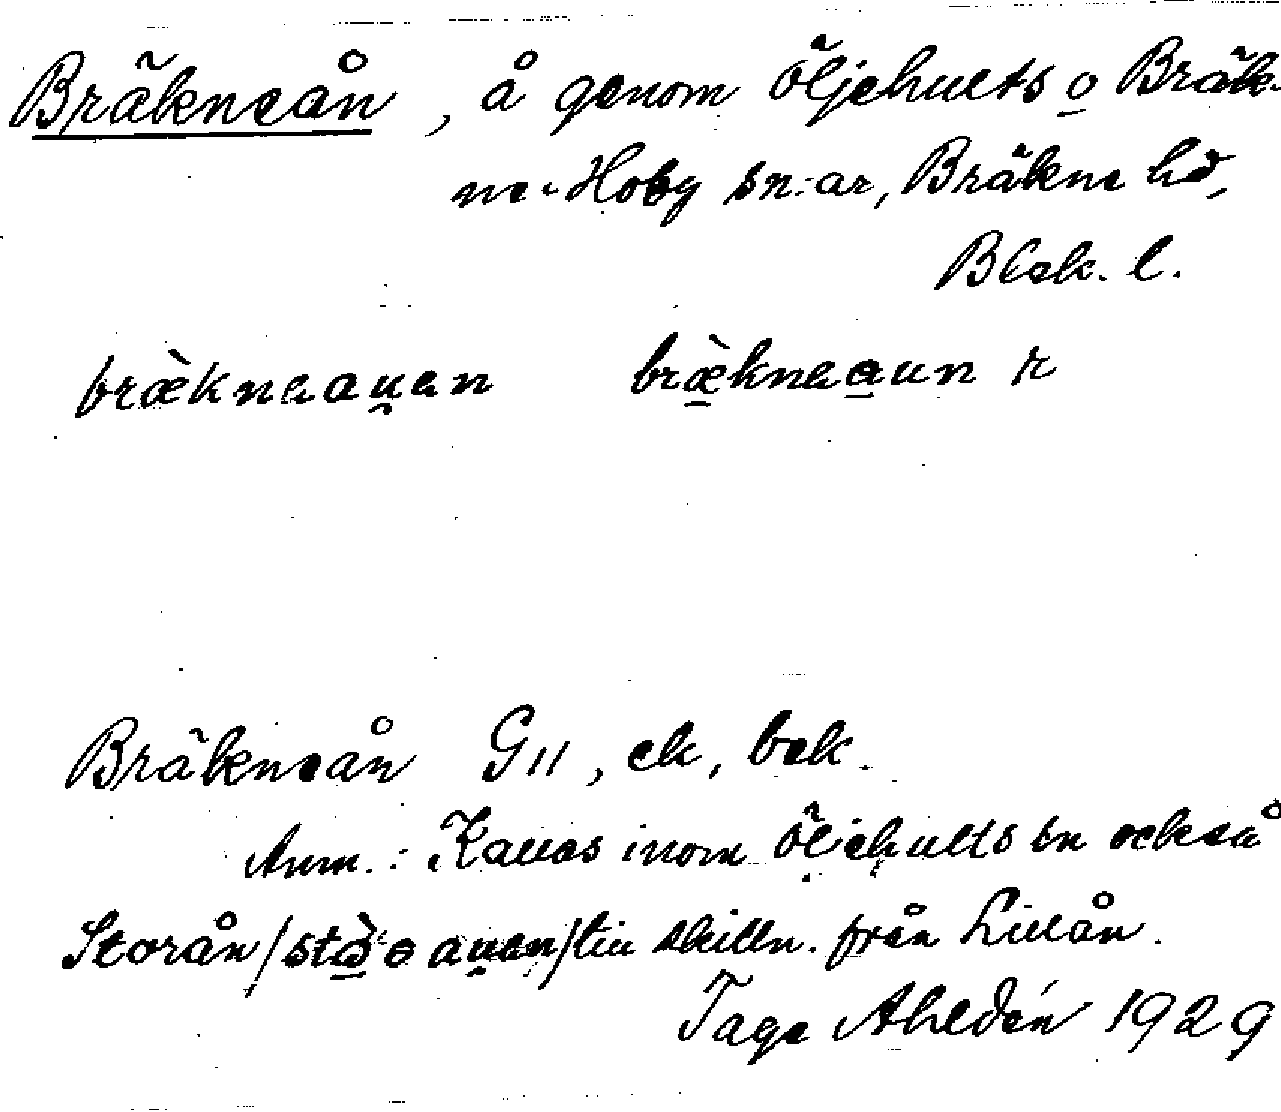 Bräkneån, å genom Öljehults o Bräk-
ne-Hoby sn:ar, Bräkne hd,
Blek. l.
bræ̀kneau̯en bræ̀kneaun r
Bräkneån G11, ek, bek.
Anm.: Kallas inom Öljehults sn också
Storån / au̯en/ till skilln. från Lillån.
Tage Ahldén 1929